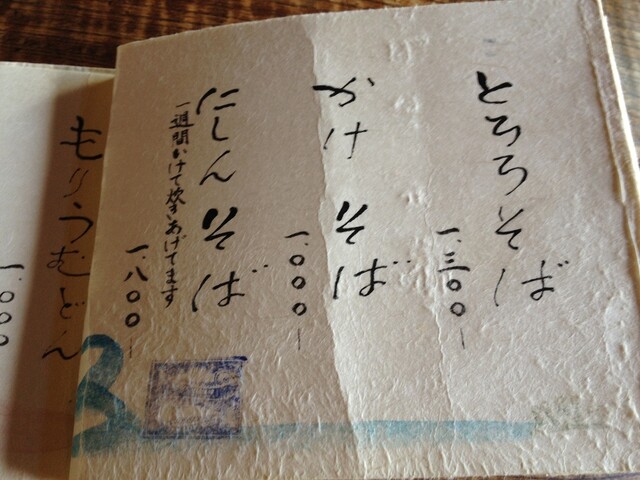 とろろそば
一、三〇〇
かけそば
一、〇〇〇
にしんそば
一週間かけて炊きあげてます
一、八〇〇
もりうむどん
一、〇〇〇